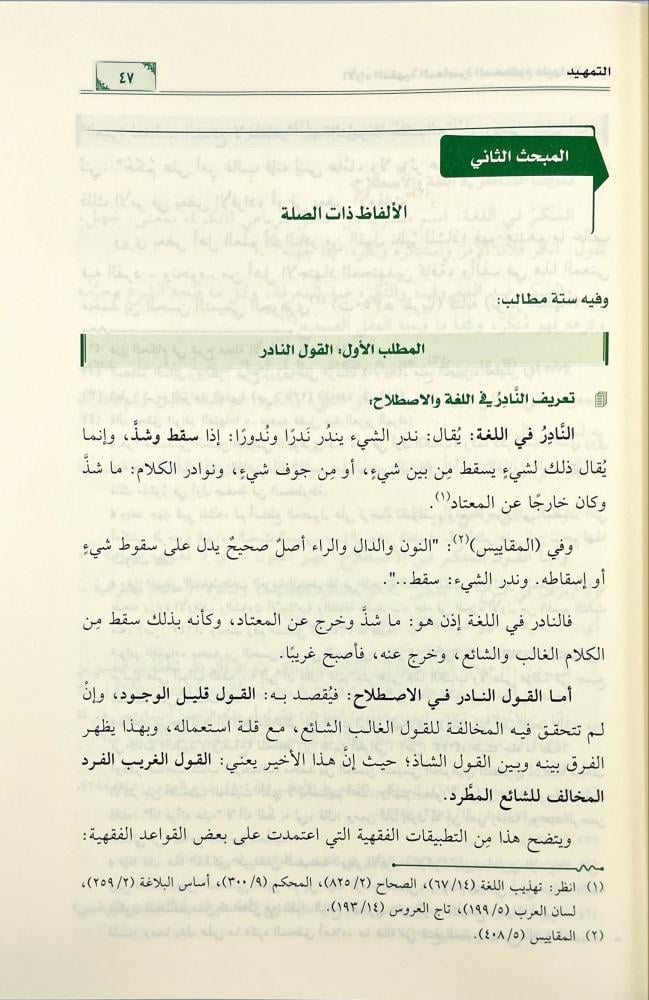 التمهيد
٤٧
المبحث الثاني
الألفاظ ذات الصلة
وفيه ستة مطالب:
المطلب الأول: القول النادر
تعريف النَّادِرُ في اللغة والاصطلاح:
النَّادِرُ في اللغة: يُقال: ندر الشيء يندُر نَدرًا ونُدورًا: إذا سقط وشذَّ، وإنما
يُقال ذلك لشيءٍ يسقط مِن بين شيءٍ، أو مِن جوف شيءٍ، ونوادر الكلام: ما شذَّ
وكان خارجًا عن المعتاد(١).
وفي (المقاييس)(٢): "النون والدال والراء أصلٌ صحيحٌ يدل على سقوط شيءٍ
أو إسقاطه. وندر الشيء: سقط..".
فالنادر في اللغة إذن هو: ما شذَّ وخرج عن المعتاد، وكأنه بذلك سقط مِن
الكلام الغالب والشائع، وخرج عنه، فأصبح غريبًا.
أما القول النادر في الاصطلاح: فيُقصد به: القول قليل الوجود، وإنْ
لم تتحقق فيه المخالفة للقول الغالب الشائع، مع قلة استعماله، وبهذا يظهر
الفرق بينه وبين القول الشاذ؛ حيث إنَّ هذا الأخير يعني: القول الغريب الفرد
المخالف للشائع المطَّرد.
ويتضح هذا مِن التطبيقات الفقهية التي اعتمدت على بعض القواعد الفقهية:
(١) انظر: تهذيب اللغة (٦٧/١٤)، الصحاح (٨٢٥/٢)، المحكم (٣٠٠/٩)، أساس البلاغة (٢٥٩/٢)،
لسان العرب (١٩٩/٥)، تاج العروس (١٩٣/١٤).
(٢) المقاييس (٤٠٨/٥).